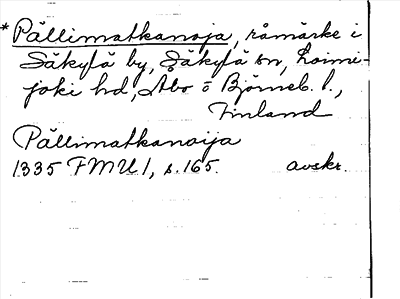 *Pällimatkanoja, råmärke i
Säkylä by, Säkylä sn, Loimi-
joki hd, Åbo o Björneb. l.,
Finland
Pällimatkanoija
1335 FMU 1, s. 165. avskr.